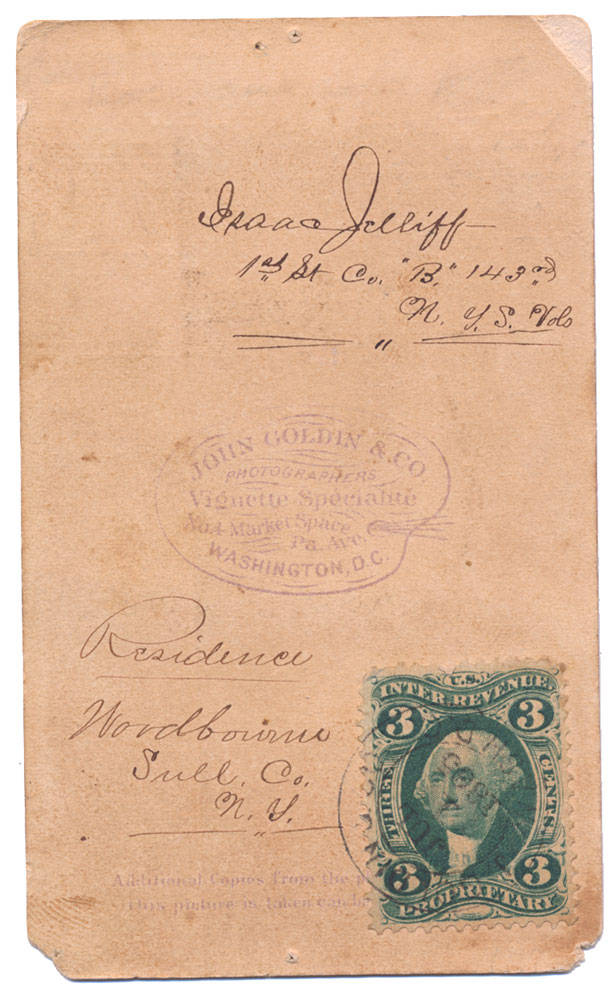 Isaac Jelliff
1st St Co. "B." 143rd
N. Y. S. Vols
JOHN GOLDIN & CO
PHOTOGRAPHERS
Vignette Specialité
No. 4 Market Space
Pa. Ave.
WASHINGTON, D.C.
Residence
Woodbourne
Sull. Co.
N. Y.
U.S.
INTER. REVENUE
3 3
THREE CENTS.
3 3
PROPRIETARY
Additional Copies from the
this picture is taken can be